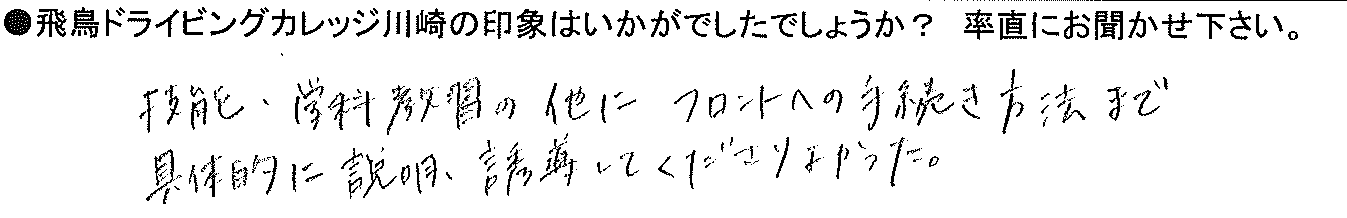 ●飛鳥ドライビングカレッジ川崎の印象はいかがでしたでしょうか？ 率直にお聞かせ下さい。
技能、学科教習の他に フロントへの手続き方法まで
具体的に説明、誘導してくださりよかった。